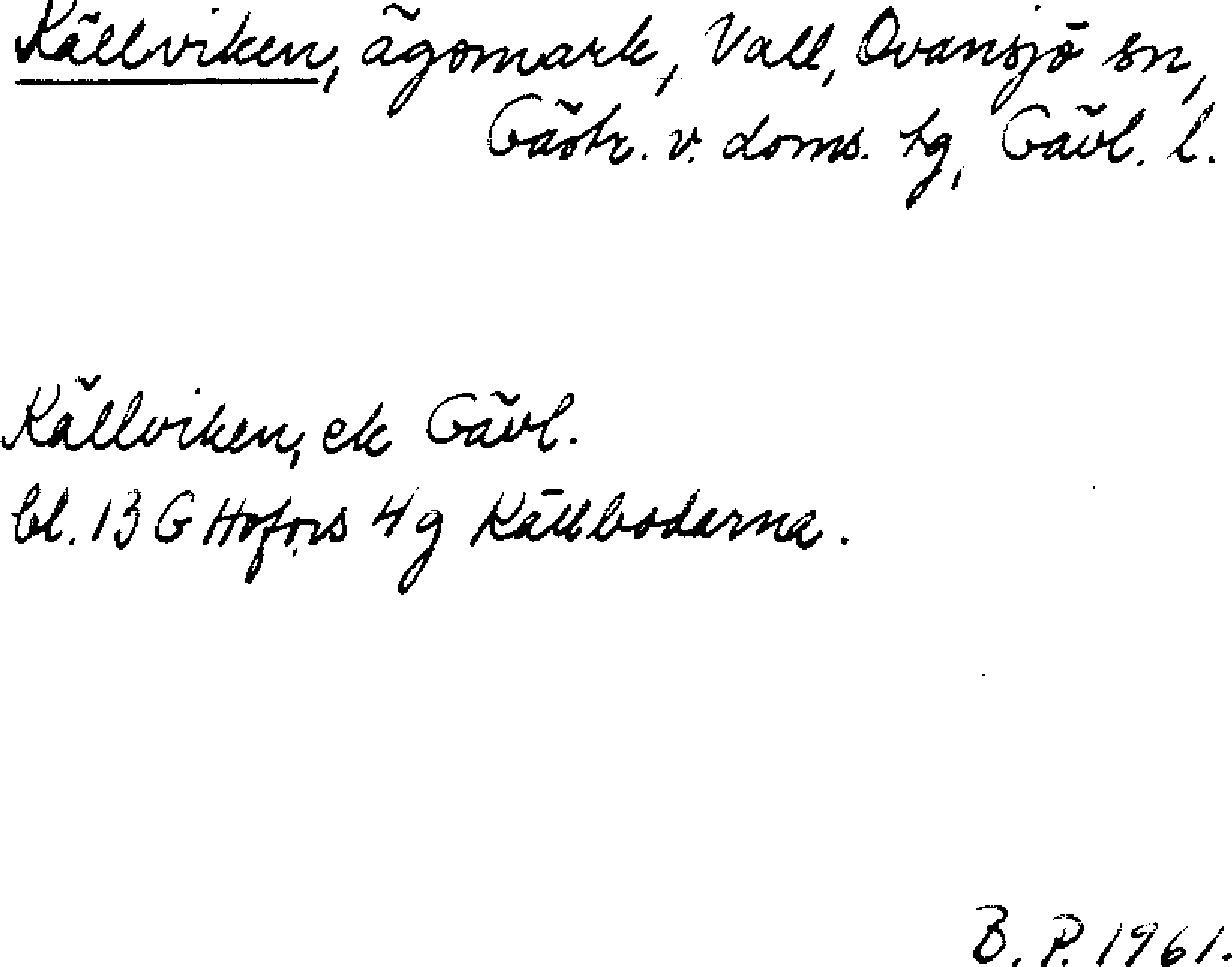 Källviken, ägomark, Vall, Ovansjö sn,
Gästr. v. doms. tg, Gävl. l.
Källviken, ek Gävl.
bl. 13 G Hofors 4 g Källbodarna.
B. P. 1961.